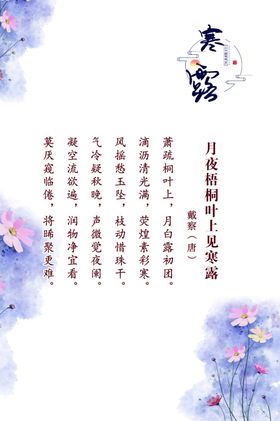 寒露
月夜梧桐叶上见寒露
戴察（唐）
萧疏桐叶上，月白露初团。
滴沥清光满，荧煌素彩寒。
风摇愁玉坠，枝动惜珠干。
气冷疑秋晚，声微觉夜阑。
凝空流欲遍，润物净宜看。
莫厌窥临倦，将晞聚更难。